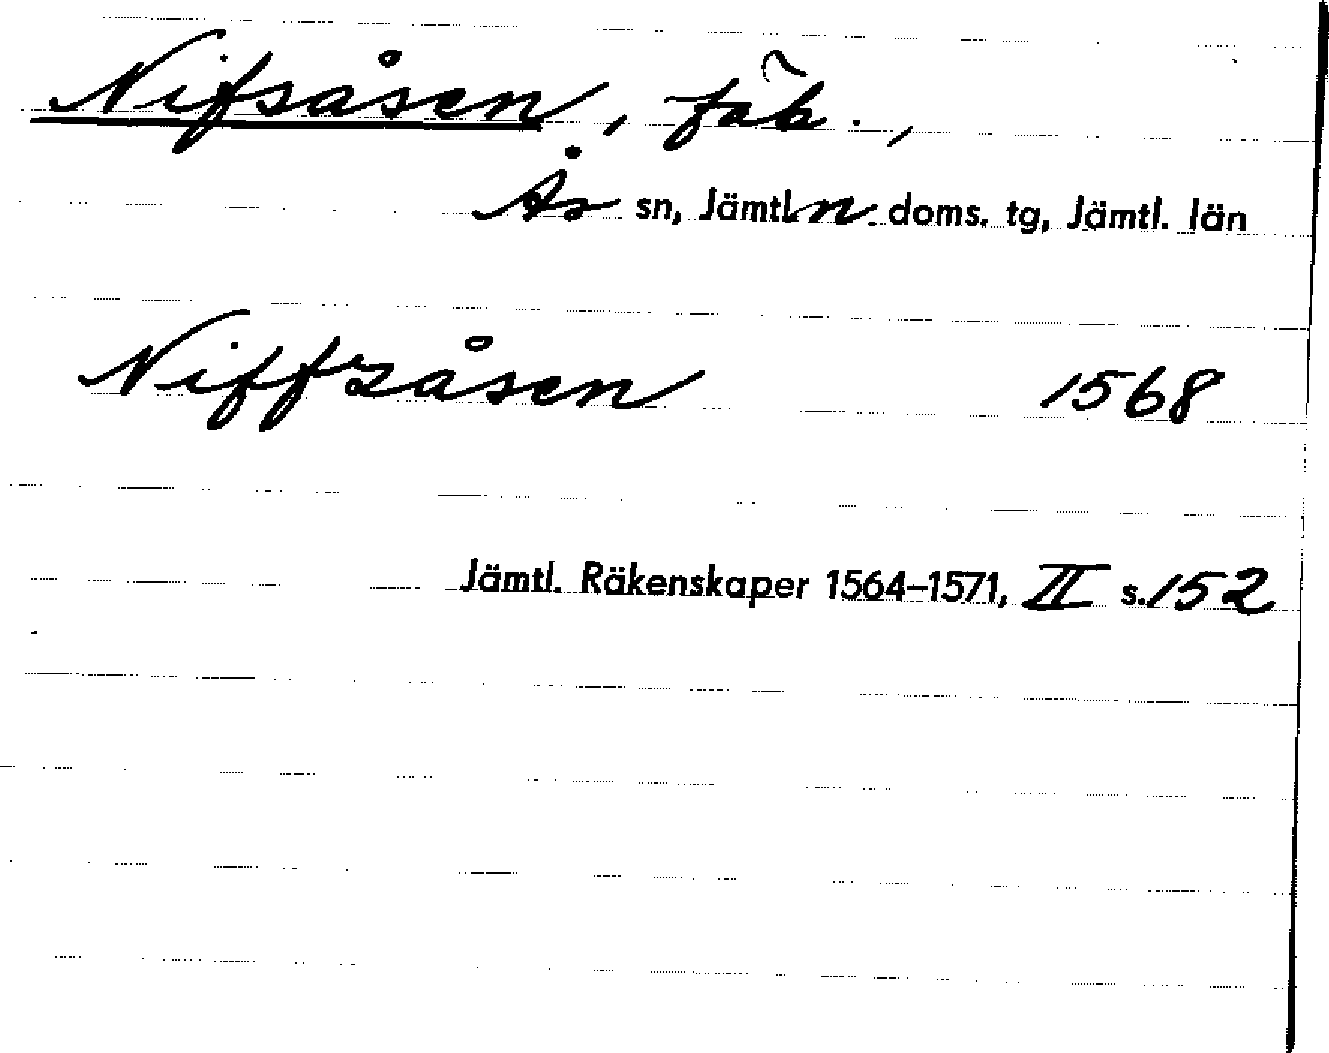 Nifsåsen, fäb.,
Ås sn, Jämtl. n. doms. tg, Jämtl. län
Niffzåsen 1568
Jämtl. Räkenskaper 1564–1571, II s. 152